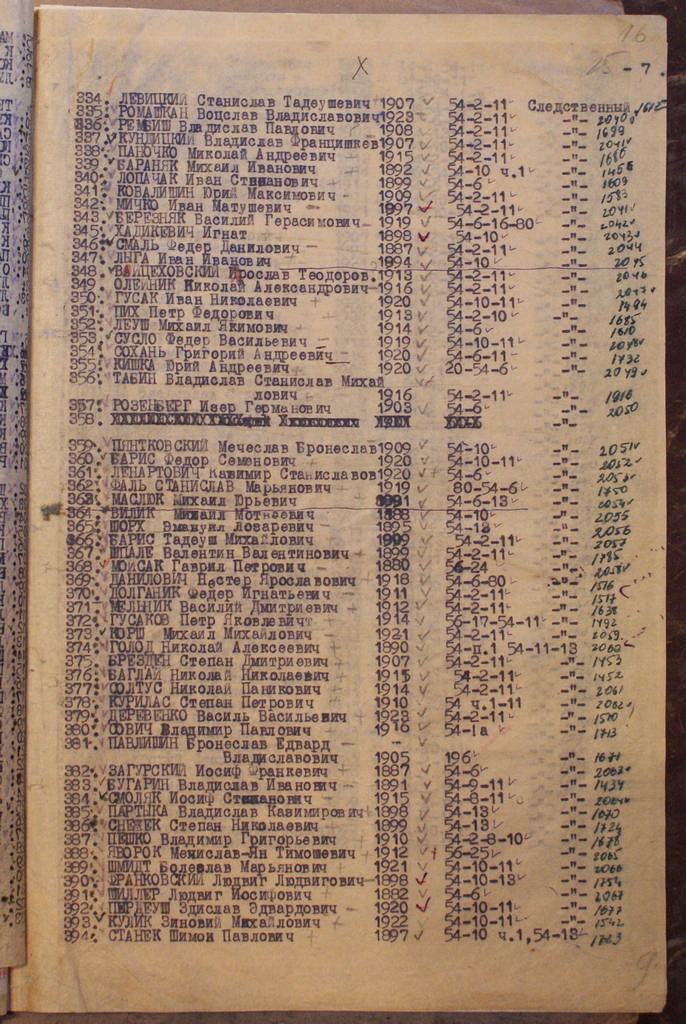 16
15 - 7.
X
334. ЛЕВИЦКИЙ Станислав Тадеушевич 1907 54-2-11 Следственный 1612
335. РОМАШКАН Воцслав Владиславович 1923 54-2-11 -"- 2040
336. РЕМБИШ Владислав Павлович 1908 54-2-11 -"- 1699
337. КУНДИЦКИЙ Владислав Францишкев 1907 54-2-11 -"- 2041
338. ПАНОЧКО Миколай Андреевич 1915 54-2-11 -"- 1680
339. БАРАНЯК Михаил Иванович 1892 54-10 ч.1 -"- 1456
340. ЛОПАЧАК Иван Степанович 1899 54-6 -"- 1609
341. КОВАЛИШИН Юрий Максимович 1909 54-2-11 -"- 1583
342. МИЧКО Иван Матушевич 1897 54-2-11 -"- 2041
343. БЕРЕЗНЯК Василий Герасимович 1919 54-6-16-80 -"- 2042
345. ХАДИКЕВИЧ Игнат 1898 54-10 -"- 2043
346. СМАЛЬ Федер Данилович 1887 54-2-11 -"- 2044
347. ЛЫГА Иван Иванович 1894 54-10 -"- 2045
348. ВАЙЦЕХОВСКИЙ Ярослав Теодоров. 1913 54-2-11 -"- 2046
349. ОЛЕЙНИК Николай Александрович 1916 54-2-11 -"- 2047
350. ГУСАК Иван Николаевич 1920 54-10-11 -"- 1494
351. ПИХ Петр Федорович 1913 54-2-10 -"- 1685
352. ЛЕУШ Михаил Якимович 1914 54-6 -"- 1610
353. СУСЛО Федер Васильевич 1919 54-10-11 -"- 2048
354. СОХАНЬ Григорий Андреевич 1920 54-6-11 -"- 1732
355. КИШКА Юрий Андреевич 1920 20-54-6 -"- 2049
356. ТАБИН Владислав Станислав Михай
лович 1916 54-2-11 -"- 1916
357. РОЗЕНБЕРГ Изер Германович 1903 54-6 -"- 2050
358.
359. ПЯНТКОВСКИЙ Мечеслав Бронеслав 1909 54-10 -"- 2051
360. БАРИС Федор Семенович 1920 54-10-11 -"- 2052
361. ЛЕНАРТОВИЧ Казимир Станиславов 1920 54-6 -"- 2053
362. ФАЛЬ СТАНИСЛАВ Марьянович 1919 80-54-6 -"- 1750
363. МАСЛЮК Михаил Юрьевич 1891 54-6-13 -"- 2054
364. ВИЛИК Михаил Мотнеевич 1888 54-10 -"- 2055
365. ШОРХ Эмануил Лозаревич 1895 54-13 -"- 2056
366. БАРИС Тадеуш Михайлович 1909 54-2-11 -"- 2057
367. ШПАЛЕ Валентин Валентинович 1899 54-2-11 -"- 1785
368. МОЙСАК Гаврил Петрович 1880 56-24 -"- 2058
369. ДАНИЛОВИЧ Нестер Ярославович 1918 54-6-80 -"- 1516
370. ДОЛГАНИК Федер Игнатьевич 1911 54-2-11 -"- 1517
371. МЕЛЬНИК Василий Дмитриевич 1912 54-2-11 -"- 1638
372. ГУСАКОВ Петр Яковлевичт 1914 56-17-54-11 -"- 1492
373. КОРШ Михаил Михайлович 1921 54-2-11 -"- 2059
374. ГОЛОД Николай Алексеевич 1890 54-п.1 54-11-13 2060
375. БРЕЗДЕН Степан Дмитриевич 1907 54-2-11 -"- 1453
376. БАГЛАЙ Николай Николаевич 1915 54-2-11 -"- 1452
377. ФОЛТУС Николай Паникович 1914 54-2-11 -"- 2061
378. КУРИЛАС Степан Петрович 1910 54 ч.1-11 -"- 2062
379. ДЕРЕВЕНКО Василь Васильевич 1923 54-2-11 -"- 1510
380. СОВИЧ Владимир Павлович 1919 54-1а -"- 1713
381. ПАВЛИШИН Бронеслав Едвард
Владиславович 1905 196 -"- 1671
382. ЗАГУРСКИЙ Иосиф Франкевич 1887 54-6 -"- 2063
383. БУГАРИН Владислав Иванович 1891 54-9-11 -"- 1439
384. СМОЛЯК Иосиф Степанович 1915 54-8-11 -"- 2064
385. ПАРТЫКА Владислав Казимирович 1898 54-13 -"- 1670
386. СНЕЖЕК Степан Николаевич 1899 54-13 -"- 1724
387. ПЕШКО Владимир Григорьевич 1910 54-2-8-10 -"- 1678
388. ЯВОРОК Менислав-Ян Тимошевич 1912 56-25 -"- 2065
389. ШМИДТ Болеслав Марьянович 1921 54-10-11 -"- 2066
390. ФРАНКОВСКИЙ Людвиг Людвигович 1898 54-10-13 -"- 1754
391. ШИЛЛЕР Людвиг Иосифович 1882 54-6 -"- 2067
392. ПЕРДЕУШ Здислав Эдвардович 1920 54-10-11 -"- 1677
393. КУЛИК Зиновий Михайлович 1922 54-10-11 -"- 1542
394. СТАНЕК Шимон Павлович 1897 54-10 ч.1,54-13 1723
9